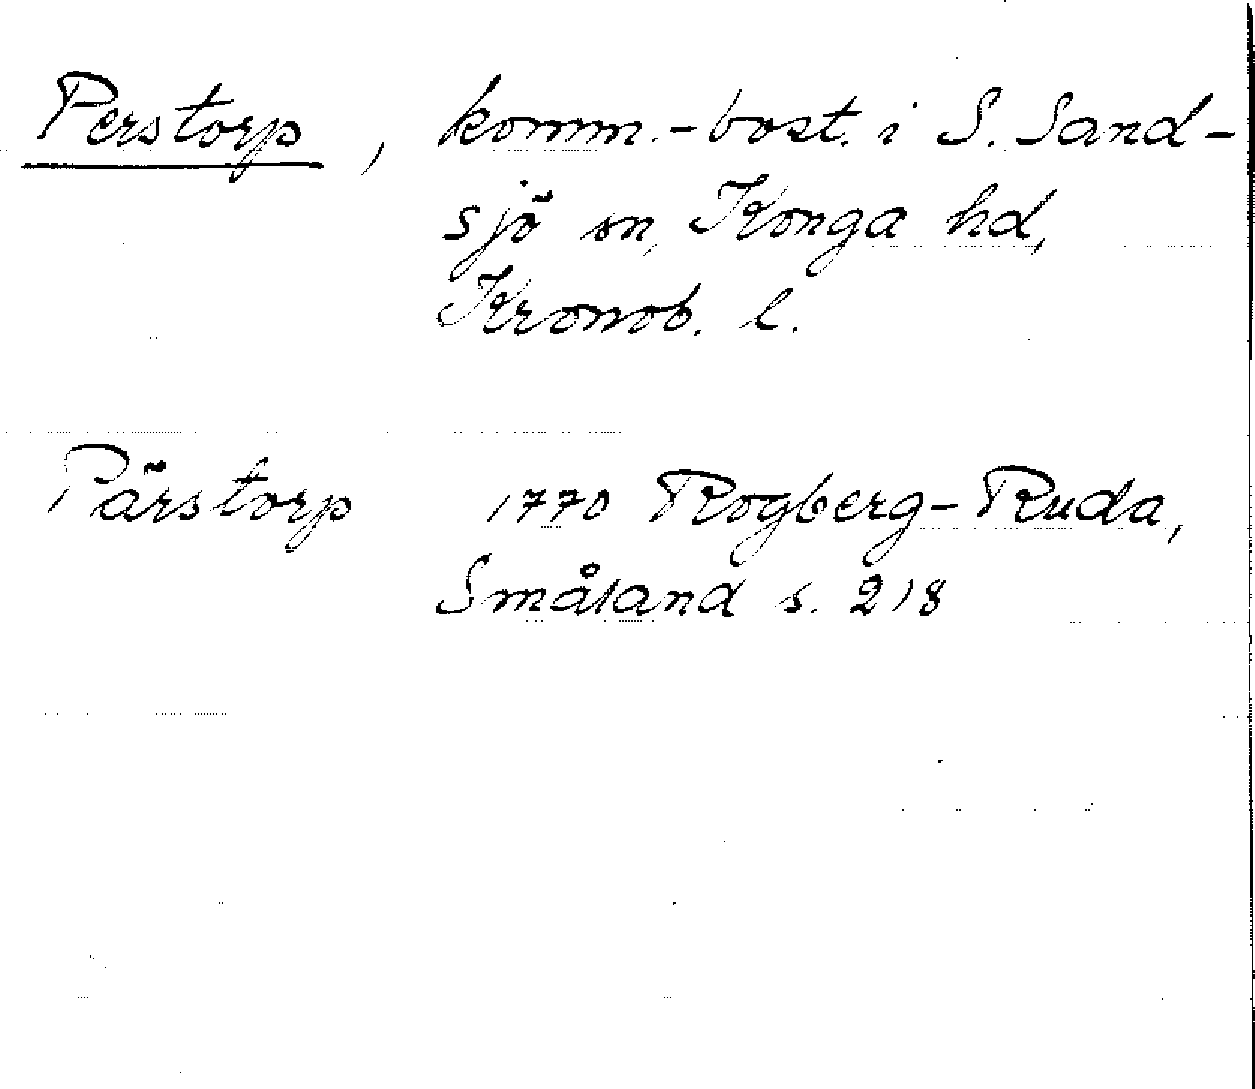 Perstorp, komm.-bost. i S. Sand-
sjö sn, Konga hd,
Kronob. l.
Pärstorp 1770 Rogberg-Ruda,
Småland s. 218